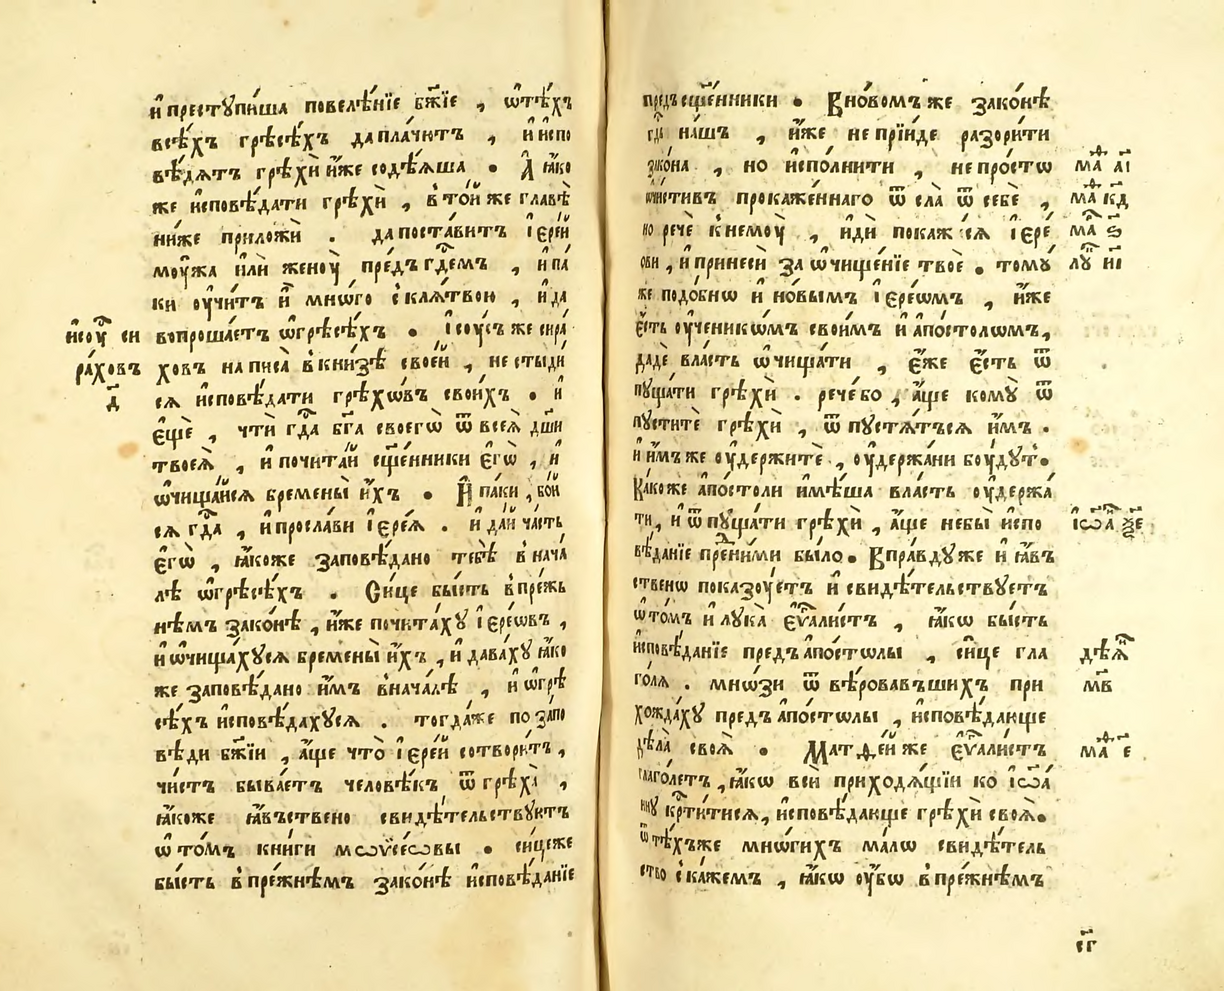 и҆престꙋпиша повелѣ́нїе бж҃їе , ѡ҆тѣ́хъ
всѣ́хъ грѣсѣ́хъ даплачютъ , и҆испо
вѣ́дятъ грѣхѝ и҆́же содѣ́яша . А꙼ ꙗ҆́ко
же и҆сповѣ́дати грѣхѝ , втои́же главѣ̀
ни́же приложѝ . дапоставитъ і҆ере́й
моу́жа и҆лѝ женоу̀ пре́дъ гд҇емъ , и҆па
ки оу҆чи́тъ и҆ мно́гѡ склѧ́твою , и҆да
вопроша́етъ ѡ҆грѣсѣ́хъ . і҆соу́съ же сира́
и҆соу҇ си
ховъ написа̀ вкни́зѣ свое́й , не стыди́
ра́ховъ
сѧ и҆сповѣ́дати грѣхѡ́въ свои́хъ . и҆
д҃
є҆щѐ , чти̑ гд҇а бг҃а своегѡ̀ ѿ всеѧ̀ дш҃и
твоеѧ̀ , и҆почита́й сщ҃е́нники є҆гѡ̀ , и҆
ѡ҆чища́йсѧ бремены̀ и҆́хъ . И҆ па́ки , бо́й
сѧ гд҇а , и҆просла́ви і҆ере́ѧ . и҆ да́й ча́сть
є҆гѡ̀ , ꙗ҆́коже заповѣ́дано тебѣ̀ внача́
лѣ ѡ҆грѣсѣ́хъ . Си́це бы́сть впре́жь
немъ зако́нѣ , и҆́же почита́хꙋ і҆ере́ѡвъ ,
и҆ѡ҆чища́хꙋсѧ бремены̀ и҆́хъ , и҆дава́хꙋ ꙗ҆́ко
же заповѣ́дано и҆́мъ внача́лѣ , и҆ ѡ҆грѣ
сѣ́хъ и҆сповѣ́дахꙋсѧ . тогда́же по запо
вѣди бж҃їи , а҆́ще что̀ і҆ере́й сотвори́тъ ,
чи́стъ быва́етъ человѣ́къ ѿ грѣха̀ ,
ꙗ҆́коже ꙗ҆́въствено свидѣ́тельствꙋютъ
ѡ҆ то́мъ кни́ги мѡѷсе́ѡвы . си́цеже
бы́сть впре́жнѣмъ зако́нѣ и҆сповѣ́данїе
пред̾сщ҃е́нники . Вно́вомъ же зако́нѣ
гд҇ь на́шъ , и҆́же не прїи́де разори́ти
зако́на , но и҆спо́лнити , не про́стѡ
ма҇ѳ аі
ѡ҆чи́стивъ прокаже́ннаго ѿсла̀ ѿ себѐ ,
ма҇ѳ кд
но речѐ к немоу̀ , и҆дѝ покажи́сѧ і҆ере́
ма҇р ѕ
ови , и҆принесѝ за ѡ҆чище́нїе твоѐ . томꙋ́
лꙋ҇к иі
же подо́бнѡ и҆ но́вымъ і҆ере́ѡмъ , и҆́же
є҆́сть оу҆ченикѡ́мъ свои́мъ и҆ а҆по́столѡмъ,
дадѐ вла́сть ѡ҆чища́ти , є҆́же є҆́сть ѿ
пꙋща́ти грѣхѝ . рече́ бо , а҆́ще комꙋ̀ ѿ
пꙋститѐ грѣхѝ , ѿпꙋстѧ́тъсѧ и҆́мъ .
и҆ и҆́мъ же оу҆держитѐ , оу҆держа́ни боу́дꙋтъ.
Ка́коже а҆по́столи и҆мѣ́ша вла́сть оу҆держа́
ти, и҆ ѿпꙋща́ти грѣхѝ , а҆́ще не бы̀ и҆спо
і҆ѡ҇а ѯе
вѣ́данїе пре҇д ни́ми было̀. Впра́вдꙋ же и҆ ꙗ҆́въ
ственѡ показоу́етъ и҆ свидѣ́тельствꙋетъ
ѡ҆ то́мъ и҆ лꙋка̀ є҆ѵ҇алистъ , ꙗ҆́кѡ бы́сть
и҆сповѣ́данїе предъ а҆по́столы , си́це гла
дѣѧ҇н
го́лѧ . мно́зи ѿ вѣ́ровавъшихъ при
м҃в
хожда́хꙋ предъ а҆по́столы , и҆сповѣ́дающе
дѣла̀ своѧ̀ . Матѳе́й же є҆ѵ҇алистъ
ма҇ѳ е
глаго́летъ , ꙗ҆́кѡ всѝ приходѧ́щїи ко і҆ѡа́
ннꙋ кр҇ти́тисѧ, и҆сповѣ́дающе грѣхѝ своѧ̀.
ѿ тѣ́хъже мно́гихъ ма́лѡ свидѣ́тель
ство ска́жемъ , ꙗ҆́кѡ оу҆́бѡ впре́жнѣмъ
сг҃